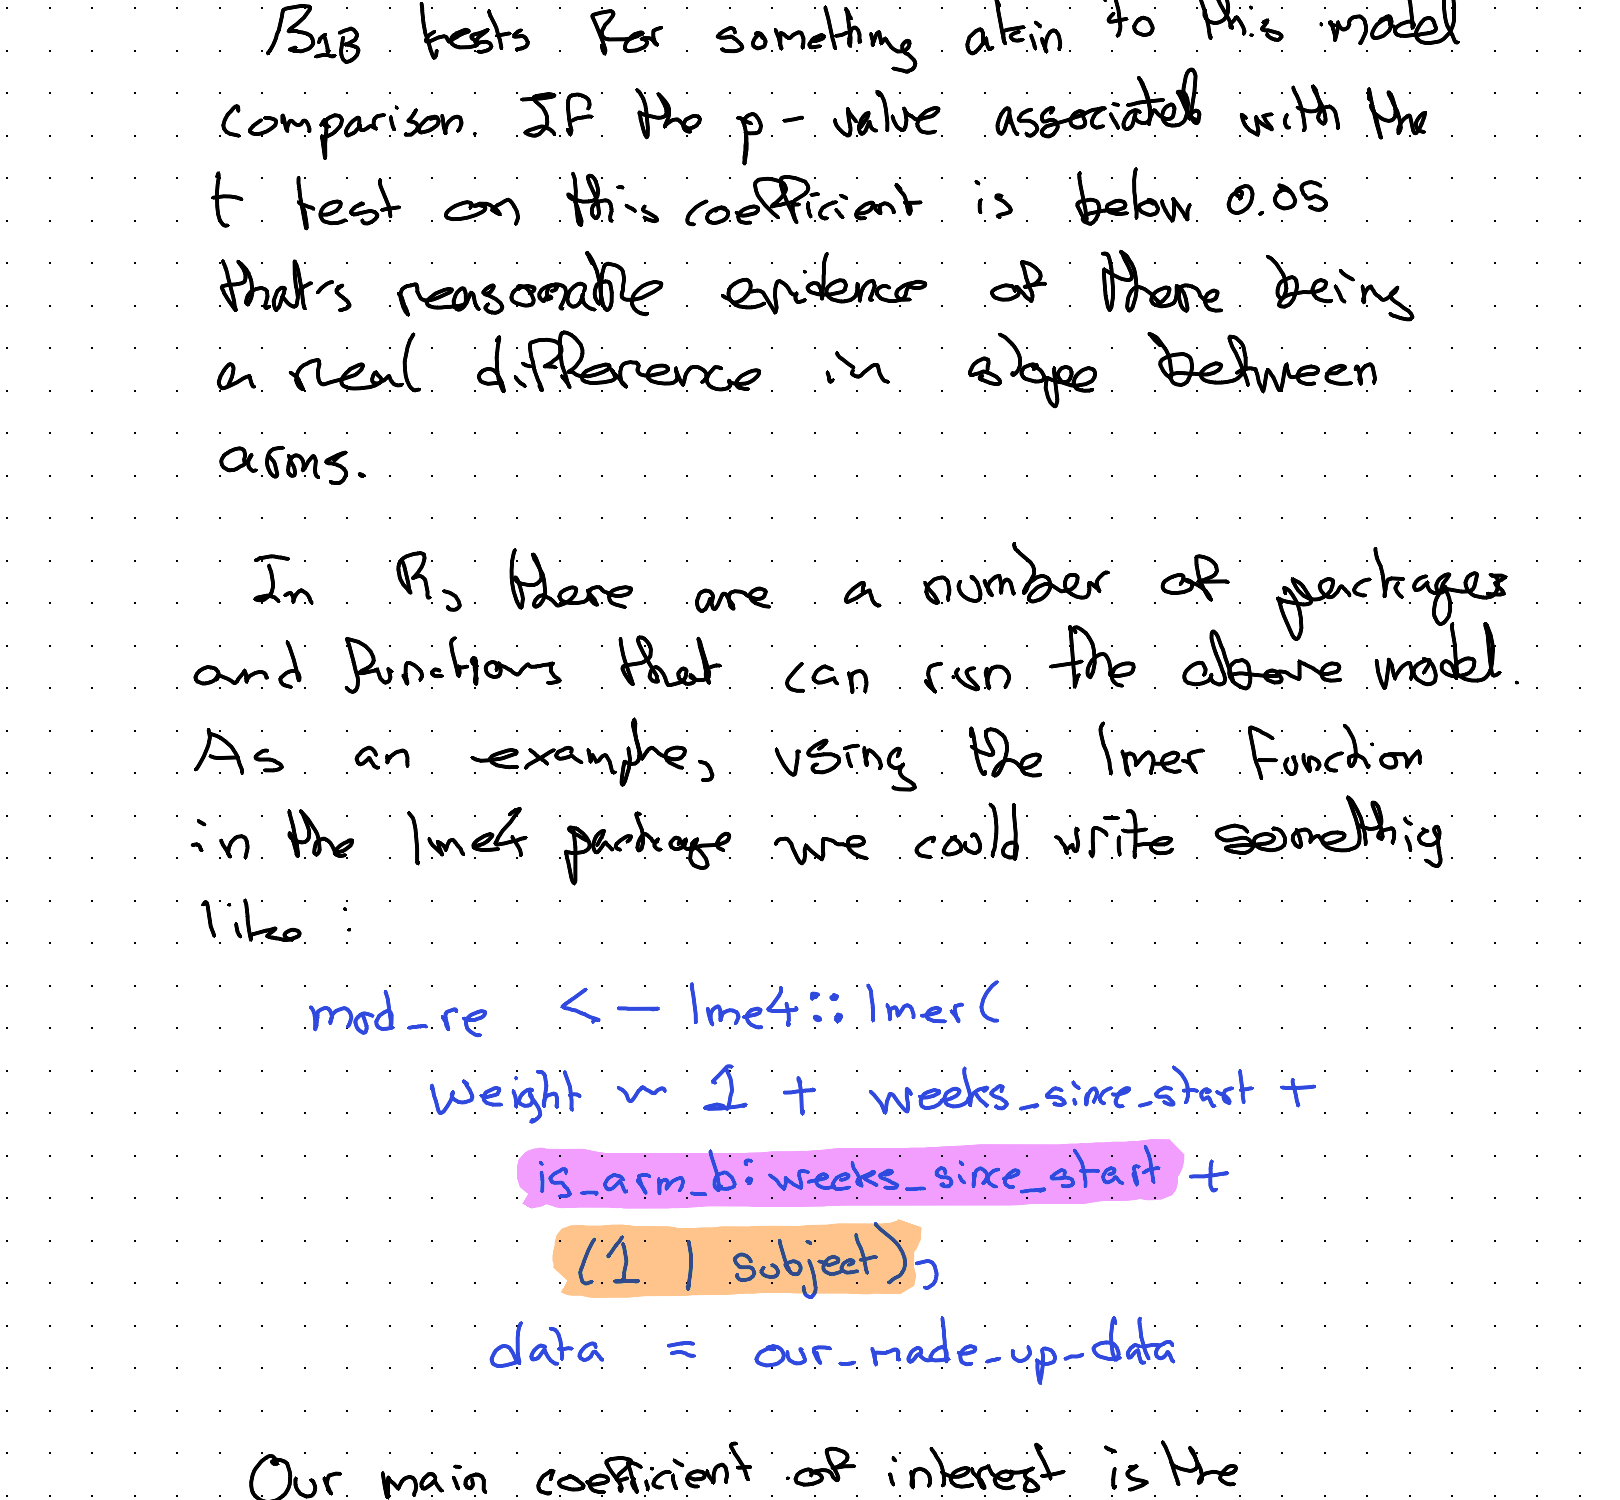 B1B tests for something akin to this model
comparison. If the p-value associated with the
t test on this coefficient is below 0.05
that's reasonable evidence of there being
a real difference in slope between
arms.
In R, there are a number of packages
and functions that can run the above model.
As an example, using the lmer function
in the lme4 package we could write somethig
like:
mod_re <- lme4::lmer(
weight ~ 1 + weeks_since_start +
is_arm_b:weeks_since_start +
(1 | subject),
data = our_made_up_data
Our main coefficient of interest is the